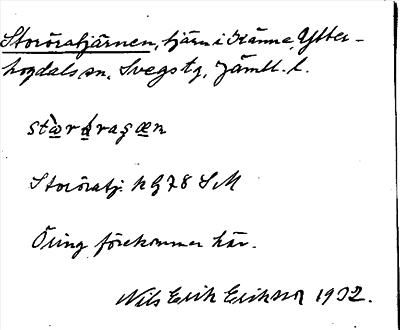 Storöratjärnen, tjärn i Känne, Ytter-
hogdals sn, Svegs tg, Jämtl. l.
Storöratj. kg 78 SM
Öring förekommer här.
Nils Erik Eriksson 1932.